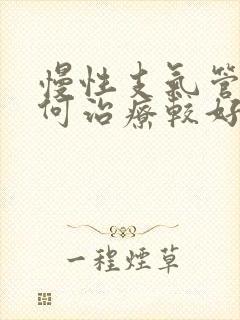 慢性支氣管
何治療較好
一程煙草